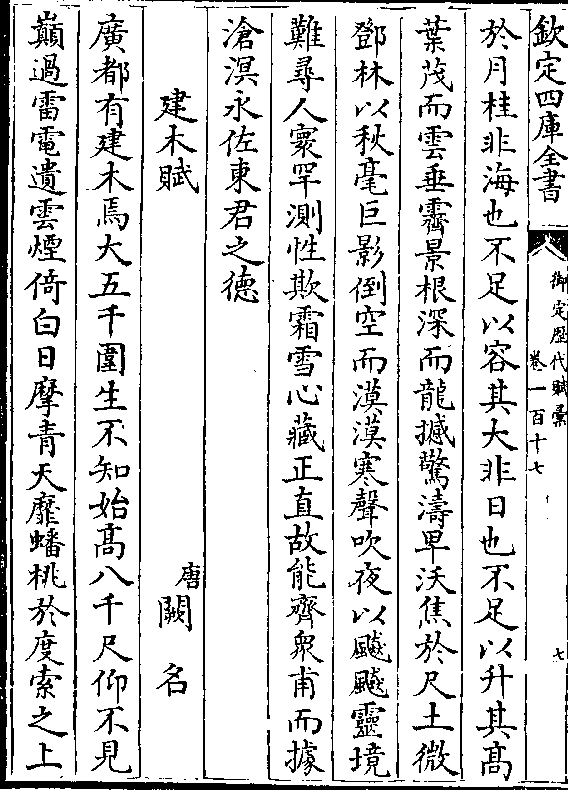 欽定四庫全書
御定歴代賦彙
卷一百十七
七
於月桂非海也不足以容其大非日也不足以升其髙
葉茂而雲垂霽景根深而龍撼驚濤卑沃焦於尺土微
鄧林以秋毫巨影倒空而漠漠寒聲吹夜以飈飈靈境
難尋人寰罕測性欺霜雪心藏正直故能齊衆甫而據
滄溟永佐東君之德
建木賦
唐闕名
廣都有建木焉大五千圍生不知始髙八千尺仰不見
巔過雷電遺雲煙倚白日摩青天靡蟠桃於度索之上